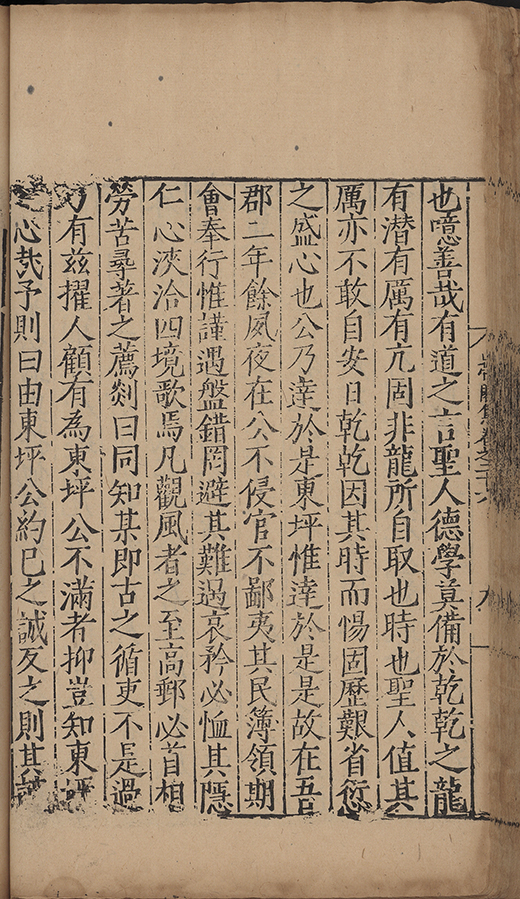 也噫善哉有道之言聖人德學莫備於乾乾之龍
有潜有厲有亢固非龍所自取也時也聖人值其
厲亦不敢自安日乾乾因其時而惕固歷艱省愆
之盛心也公乃達於是東坪惟達於是是故在吾
郡二年餘夙夜在公不侵官不鄙夷其民簿領期
會奉行惟謹遇盤錯罔避其難遇哀矜必恤其隱
仁心浹洽四境歌焉凡觀風者之至高郵必首相
勞苦㝷著之薦剡曰同知某即古之循吏不是過
有兹擢人顧有為東坪公不滿者抑豈知東坪
之心㢤予則曰由東坪公約巳之誠反之則其